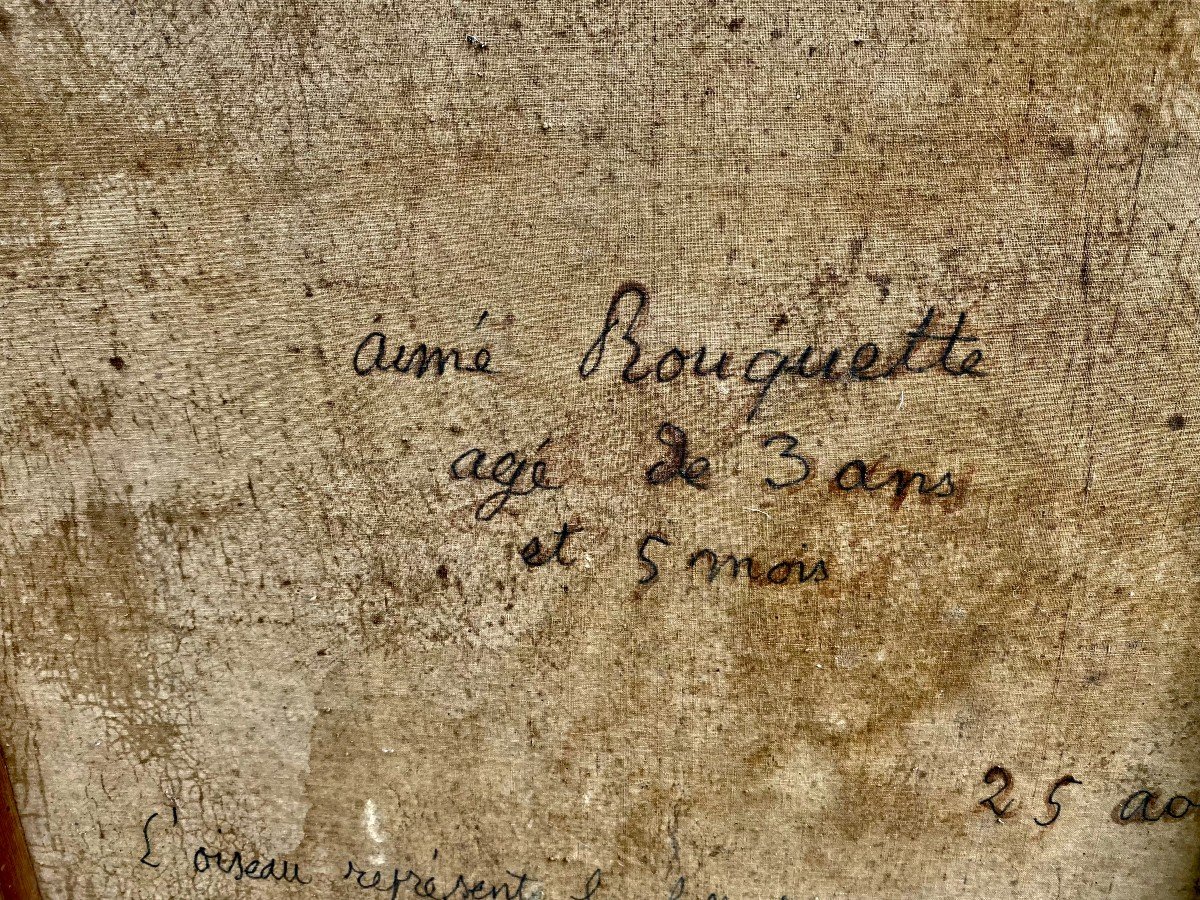 aimé Rouquette
agé de 3 ans
et 5 mois
25 ao
L'oiseau représent